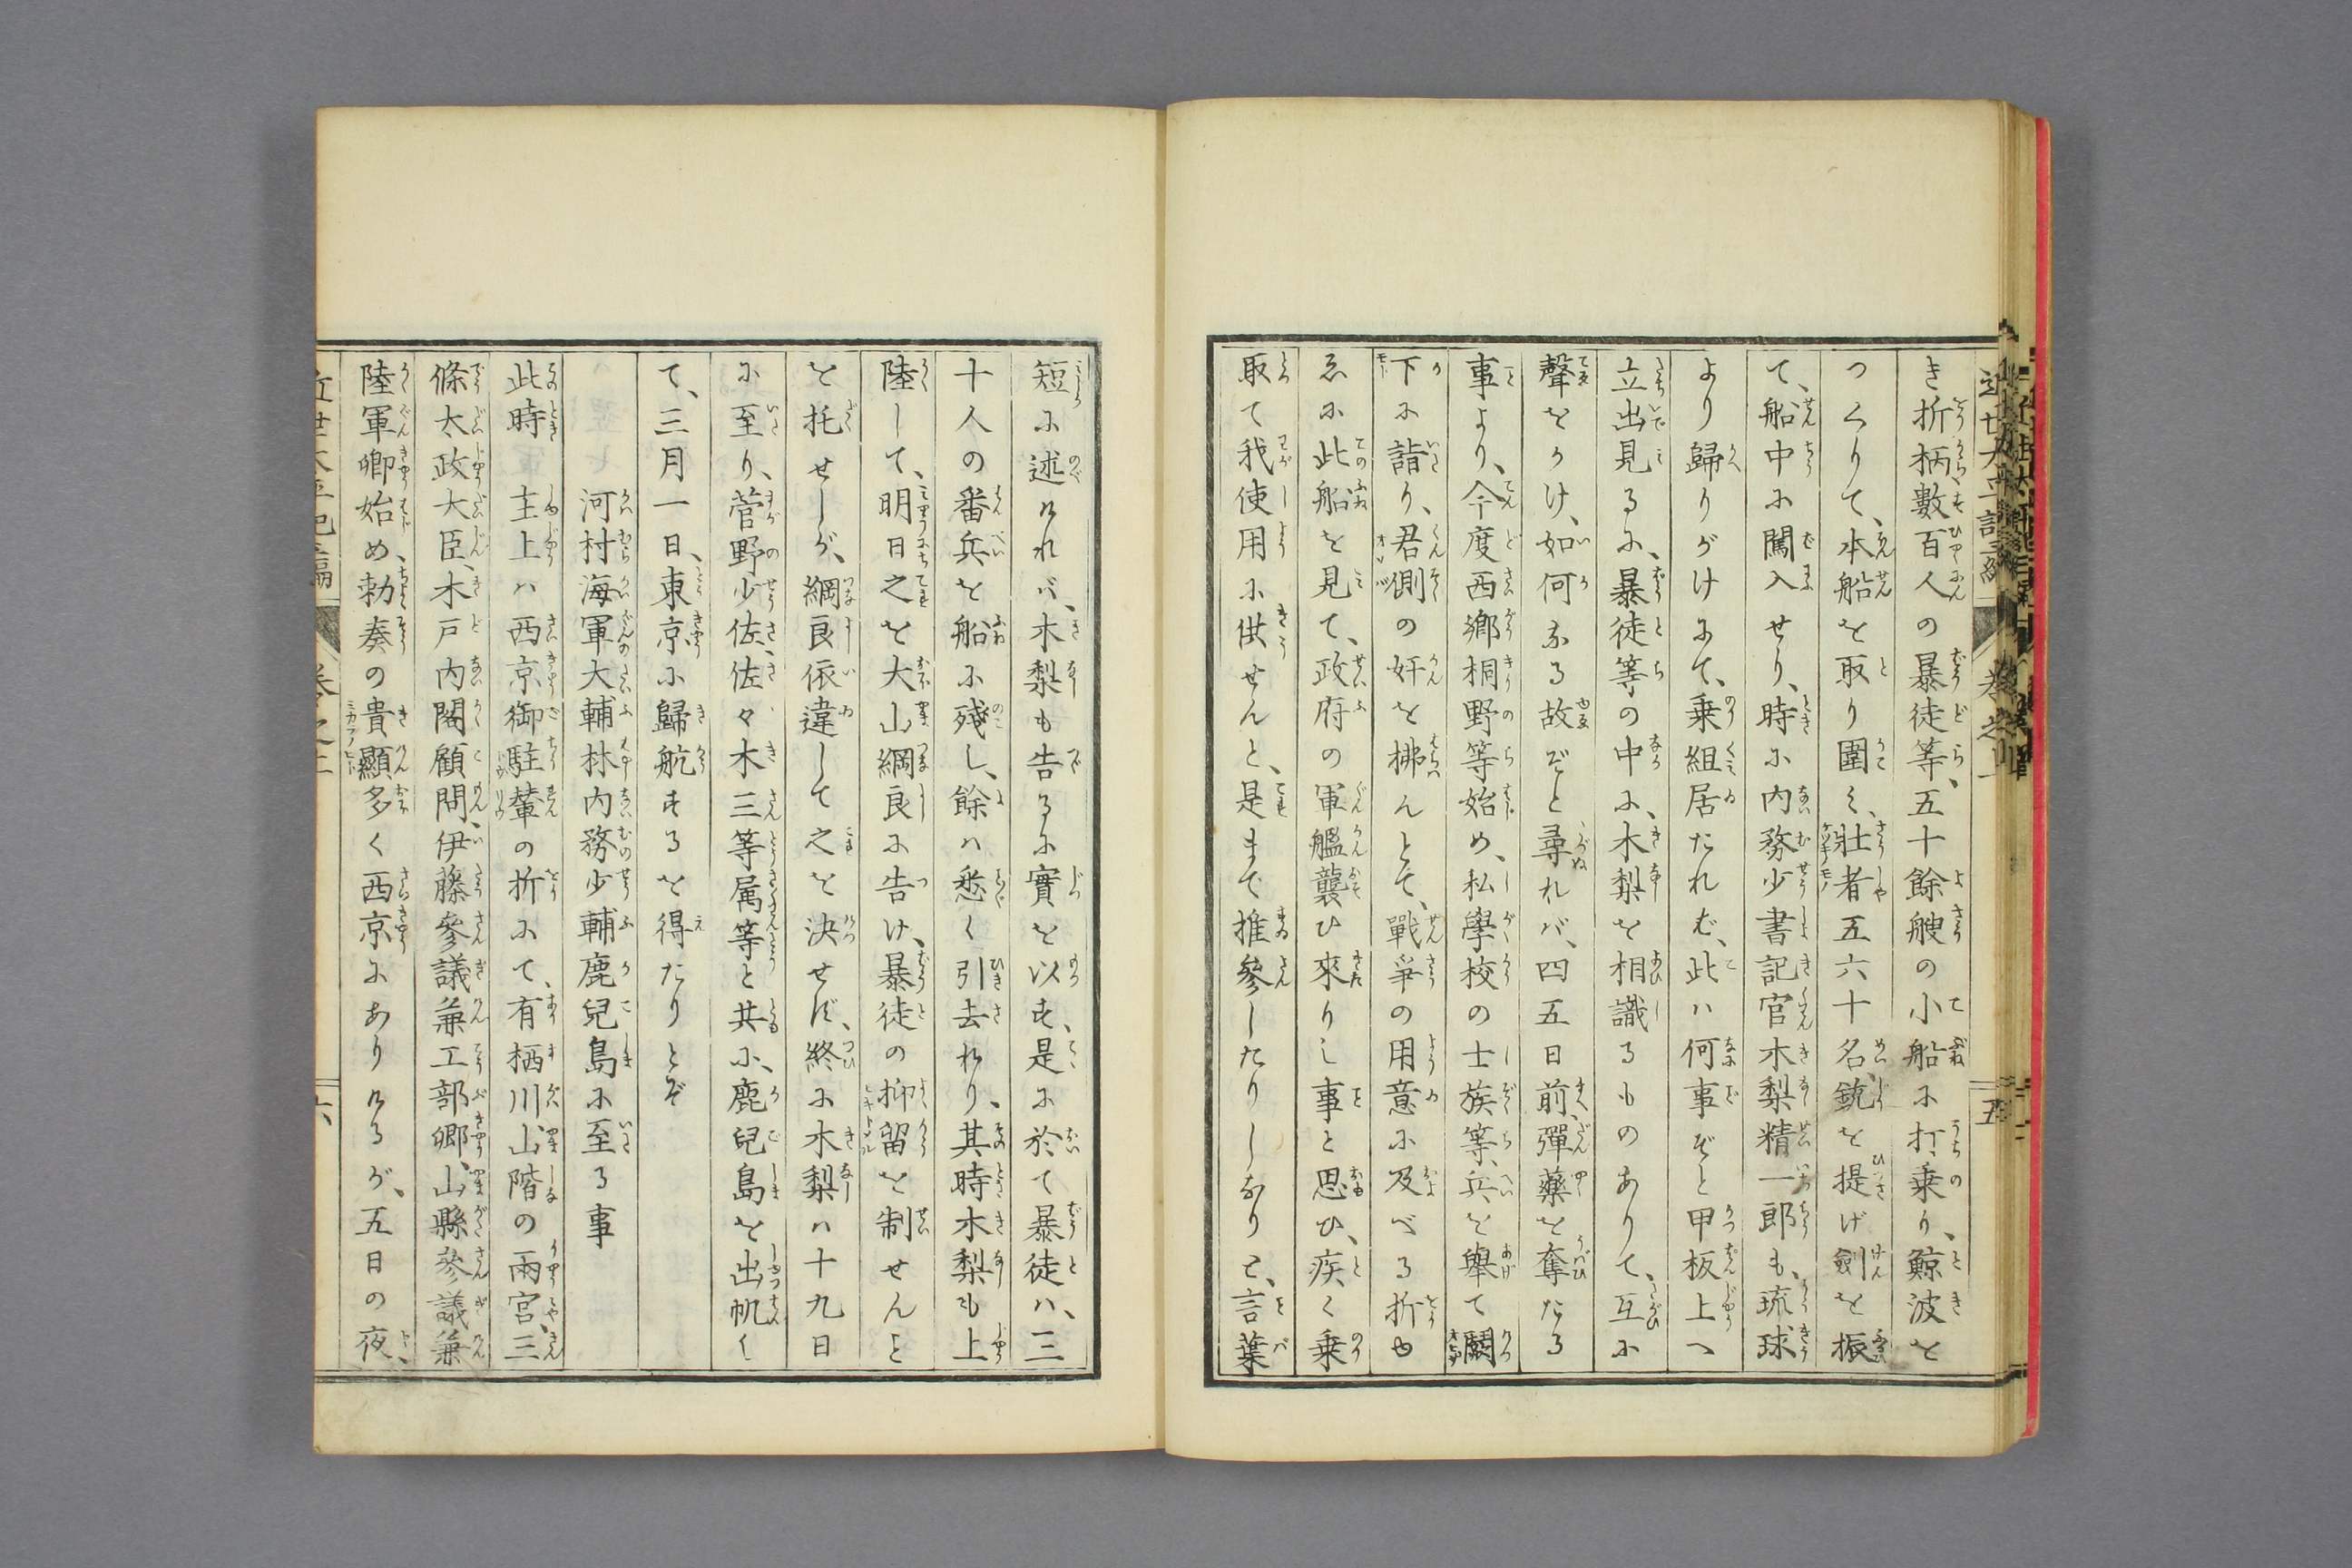 き折柄數百人の暴徒等、五十餘艘の小船に打乗り、鯨波を
つくりて、本船を取り圍く、壯者五六十名、銃を提げ劍を振
て、船中に闖入せり、時に内務少書記官木梨精一郎も、琉球
より歸りがけにて、乗組居たれば、此ハ何事ぞと甲板上へ
立出見るに、暴徒等の中に、木梨を相識るものありて、互に
聲をかけ、如何なる故ぞと尋れバ、四五日前、彈藥を奪たる
事より、今度西郷桐野等始め、私學校の士族等、兵を擧て闕
下に詣り、君側の奸を拂んとて、戰爭の用意に及べる折も
ゑに此船を見て、政府の軍艦襲ひ來りし事と思ひ、疾く乗
取て我使用に供せんと、是まで推參したりしなりと、言葉
短に述けれバ、木梨も告るに實を以す、是に於て暴徒ハ、三
十人の番兵を船に殘し、餘ハ悉く引去れり、其時木梨も上
陸して、明日之を大山綱良に告け、暴徒の抑留を制せんと
を托せしが、綱良依違して之を決せず、終に木梨ハ十九日
に至り、菅野少佐、佐々木三等属等と共に、鹿兒島を出帆し
て、三月一日、東京に歸航するを得たりとぞ
河村海軍大輔林内務少輔鹿兒島に至る事
此時　主上ハ西京御駐輦の折にて、有栖川、山階の兩宮、三
條太政大臣、木戸内閣顧問、伊藤參議兼工部卿、山縣參議兼
陸軍卿始め、勅奏の貴顯多く西京にありけるが、五日の夜、